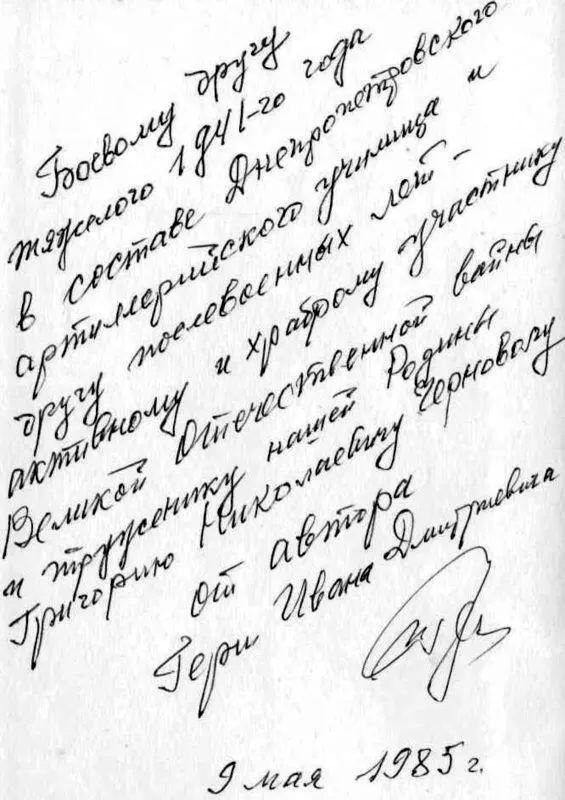 Боевому другу
тяжелого 1941-го года
в составе Днепропетровского
артиллерийского училища и
другу послевоенных лет -
активному и храброму участнику
Великой Отечественной войны
и труженику нашей Родины
Григорию Николаевичу Черновому
от автора
Гери Ивана Дмитриевича
9 мая 1985 г.